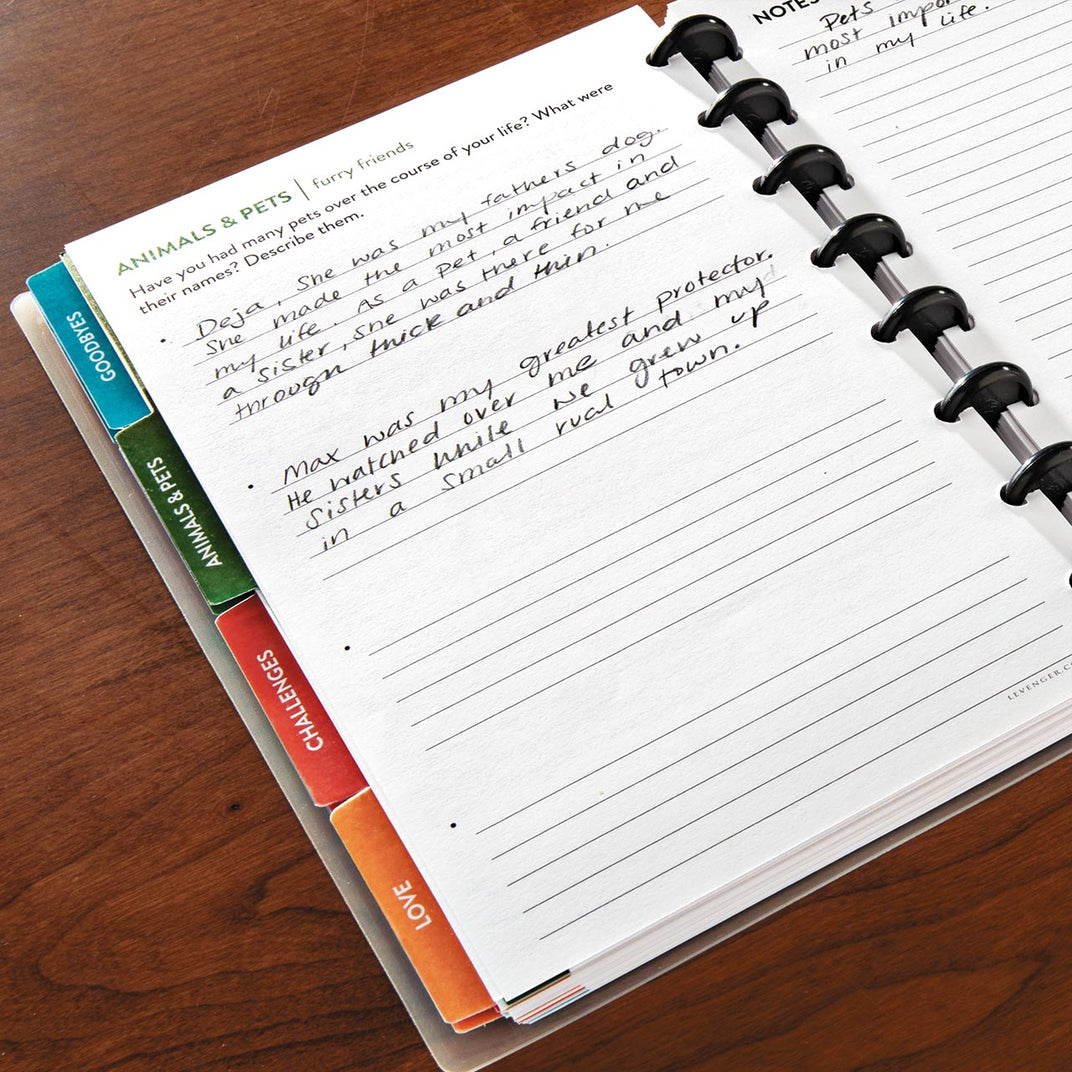 ANIMALS & PETS | furry friends
Have you had many pets over the course of your life? What were
their names? Describe them.
• Deja, She was my fathers dog.
She made the most impact in
my life. As a pet, a friend and
a sister, she was there for me
through thick and thin.
• Max was my greatest protector.
He watched over me and my
sisters while we grew up
in a small rual town.
•
•
LEVENGER.CO
NOTES
Pets
most impo
in my life.
GOODBYES
ANIMALS & PETS
CHALLENGES
LOVE